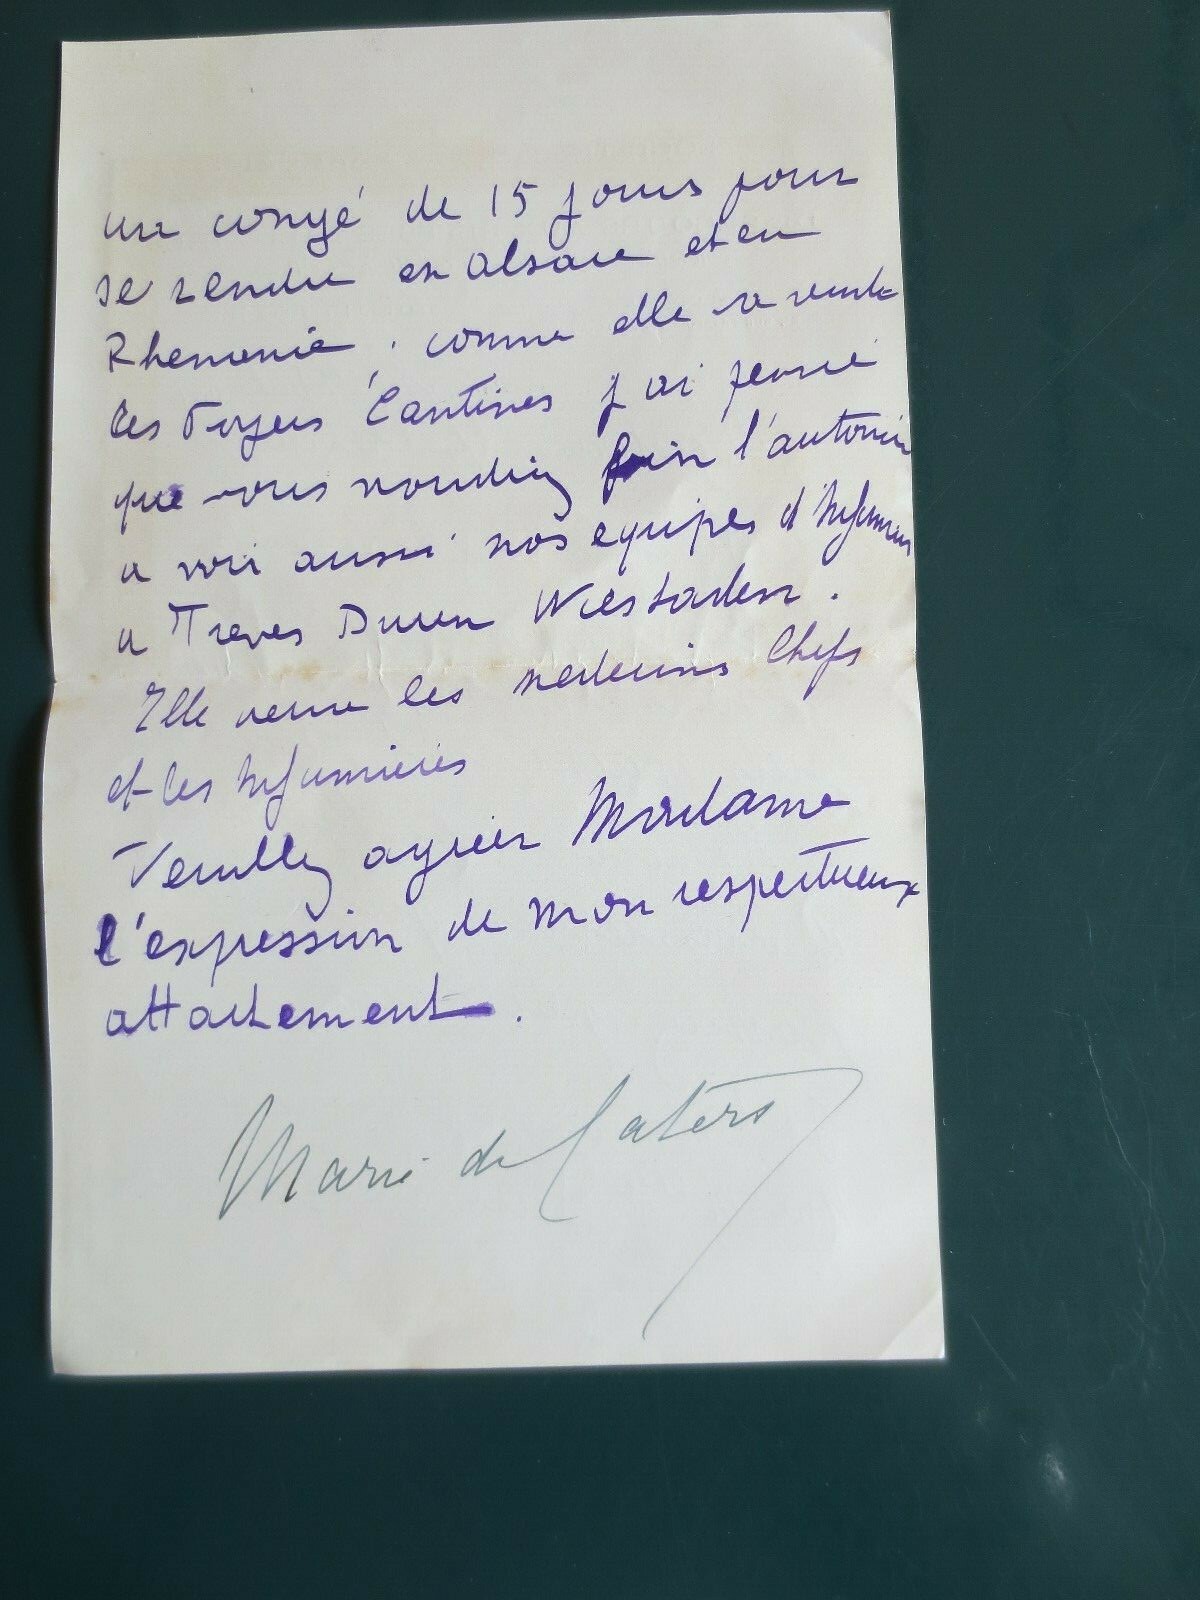 un congé de 15 jours pour
se rendre en Alsace et en
Rhenanie. comme elle va
les Foyers Cantines j'ai pensé
que vous voudriez bien l'autoriser
a voir aussi nos equipes d'Infirmieres
a Treves Duren Wiesbaden.
Elle verra les medecins Chefs
et les Infirmieres
Veuillez agréer Madame
l'expression de mon respectueux
attachement.
Marie de Caters